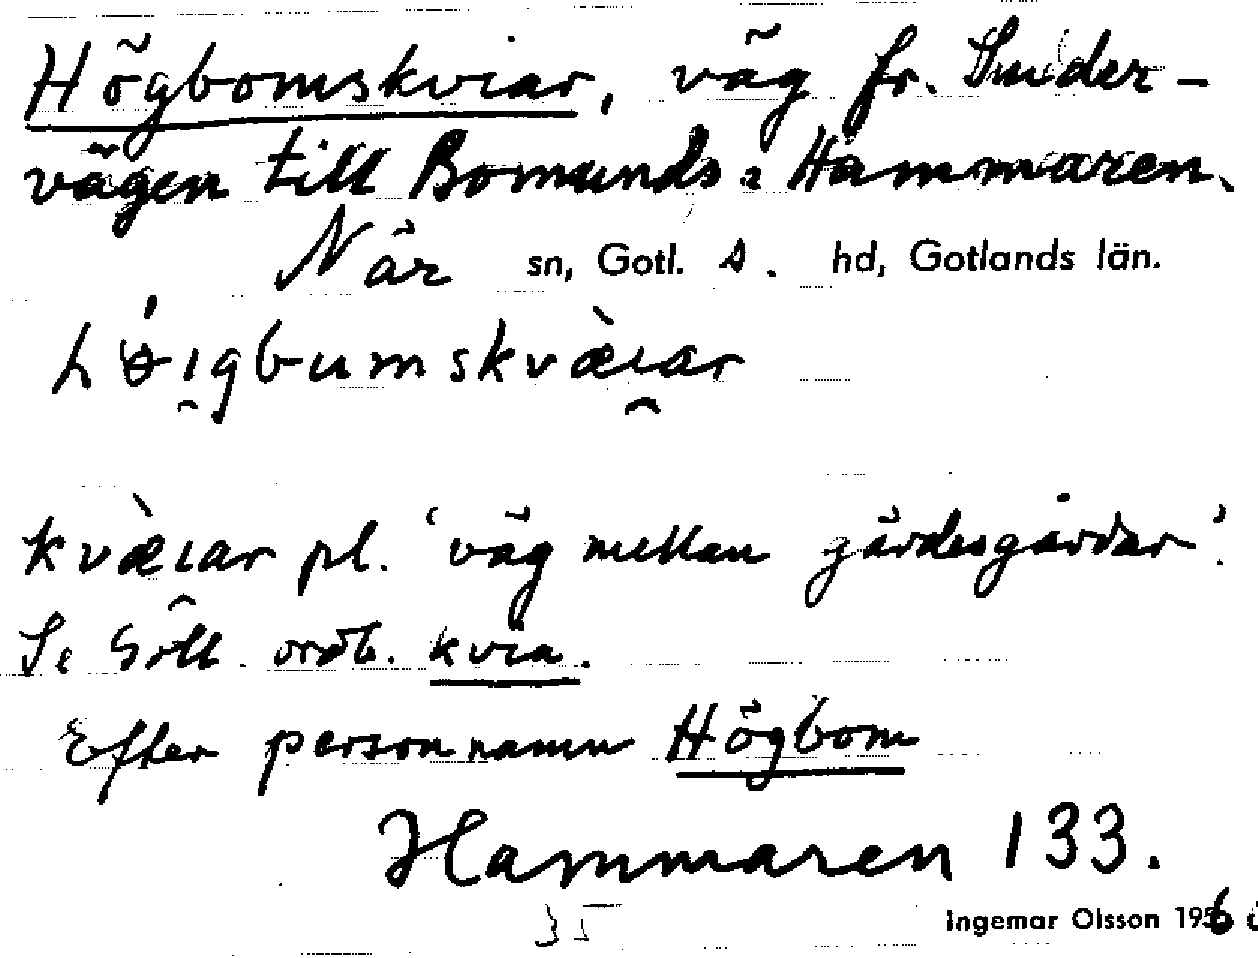 Högbomskviar, väg fr. Snider-
vägen till Bomunds i Hammaren.
När sn, Gotl. s. hd, Gotlands län.
kvæiar pl. 'väg mellan gärdesgårdar'.
Se Gotl. ordb. kvia.
Efter personnamn Högbom
Hammaren 133.
35
Ingemar Olsson 195